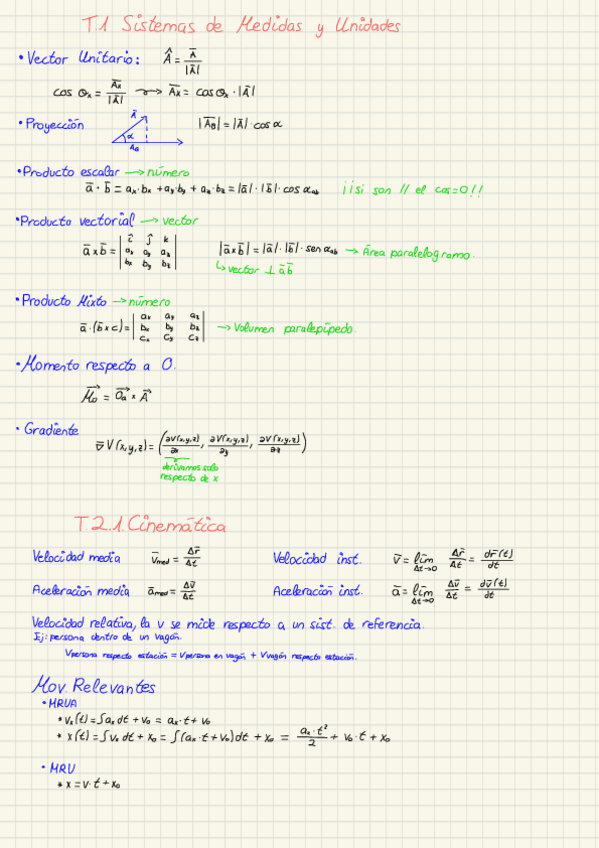 T.1 Sistemas de Medidas y Unidades
• Vector Unitario: Â = A̅ / |A̅|
cos θx = A̅x / |A̅| → A̅x = cos θx · |A̅|
• Proyección A̅ α A_B |A̅_B| = |A̅| · cos α
• Producto escalar → número
a̅ · b̅ = ax · bx + ay · by + az · bz = |a̅| · |b̅| · cos α_ab ¡¡si son // el cos=0!!
• Producto vectorial → vector
a̅ x b̅ = | î ĵ k | ax ay az | bx by bz | |a̅ x b̅| = |a̅| · |b̅| · sen α_ab → Área paralelogramo
↳ vector ⊥ a̅ b̅
• Producto Mixto → número
a̅ · (b̅ x c) = | ax ay az | bx by bz | cx cy cz | → Volumen paralepípedo
• Momento respecto a O.
M⃗o = O⃗a x A⃗
• Gradiente
∇̅ V(x,y,z) = ( ∂V(x,y,z)/∂x , ∂V(x,y,z)/∂y , ∂V(x,y,z)/∂z )
derivamos solo
respecto de x
T.2.1. Cinemática
Velocidad media v̅med = Δr̅/Δt Velocidad inst. v̅ = lim Δt→0 Δr̅/Δt = dr̅(t)/dt
Aceleración media a̅med = Δv̅/Δt Aceleración inst. a̅ = lim Δt→0 Δv̅/Δt = dv̅(t)/dt
Velocidad relativa, la v se mide respecto a un sist. de referencia.
Ej: persona dentro de un vagón.
Vpersona respecto estación = Vpersona en vagón + Vvagón respecto estación.
Mov. Relevantes
• MRUA
* vx(t) = ∫ax dt + v0 = ax · t + v0
* x(t) = ∫vx dt + x0 = ∫(ax · t + v0) dt + x0 = ax · t²/2 + v0 · t + x0
• MRU
* x = v · t + x0